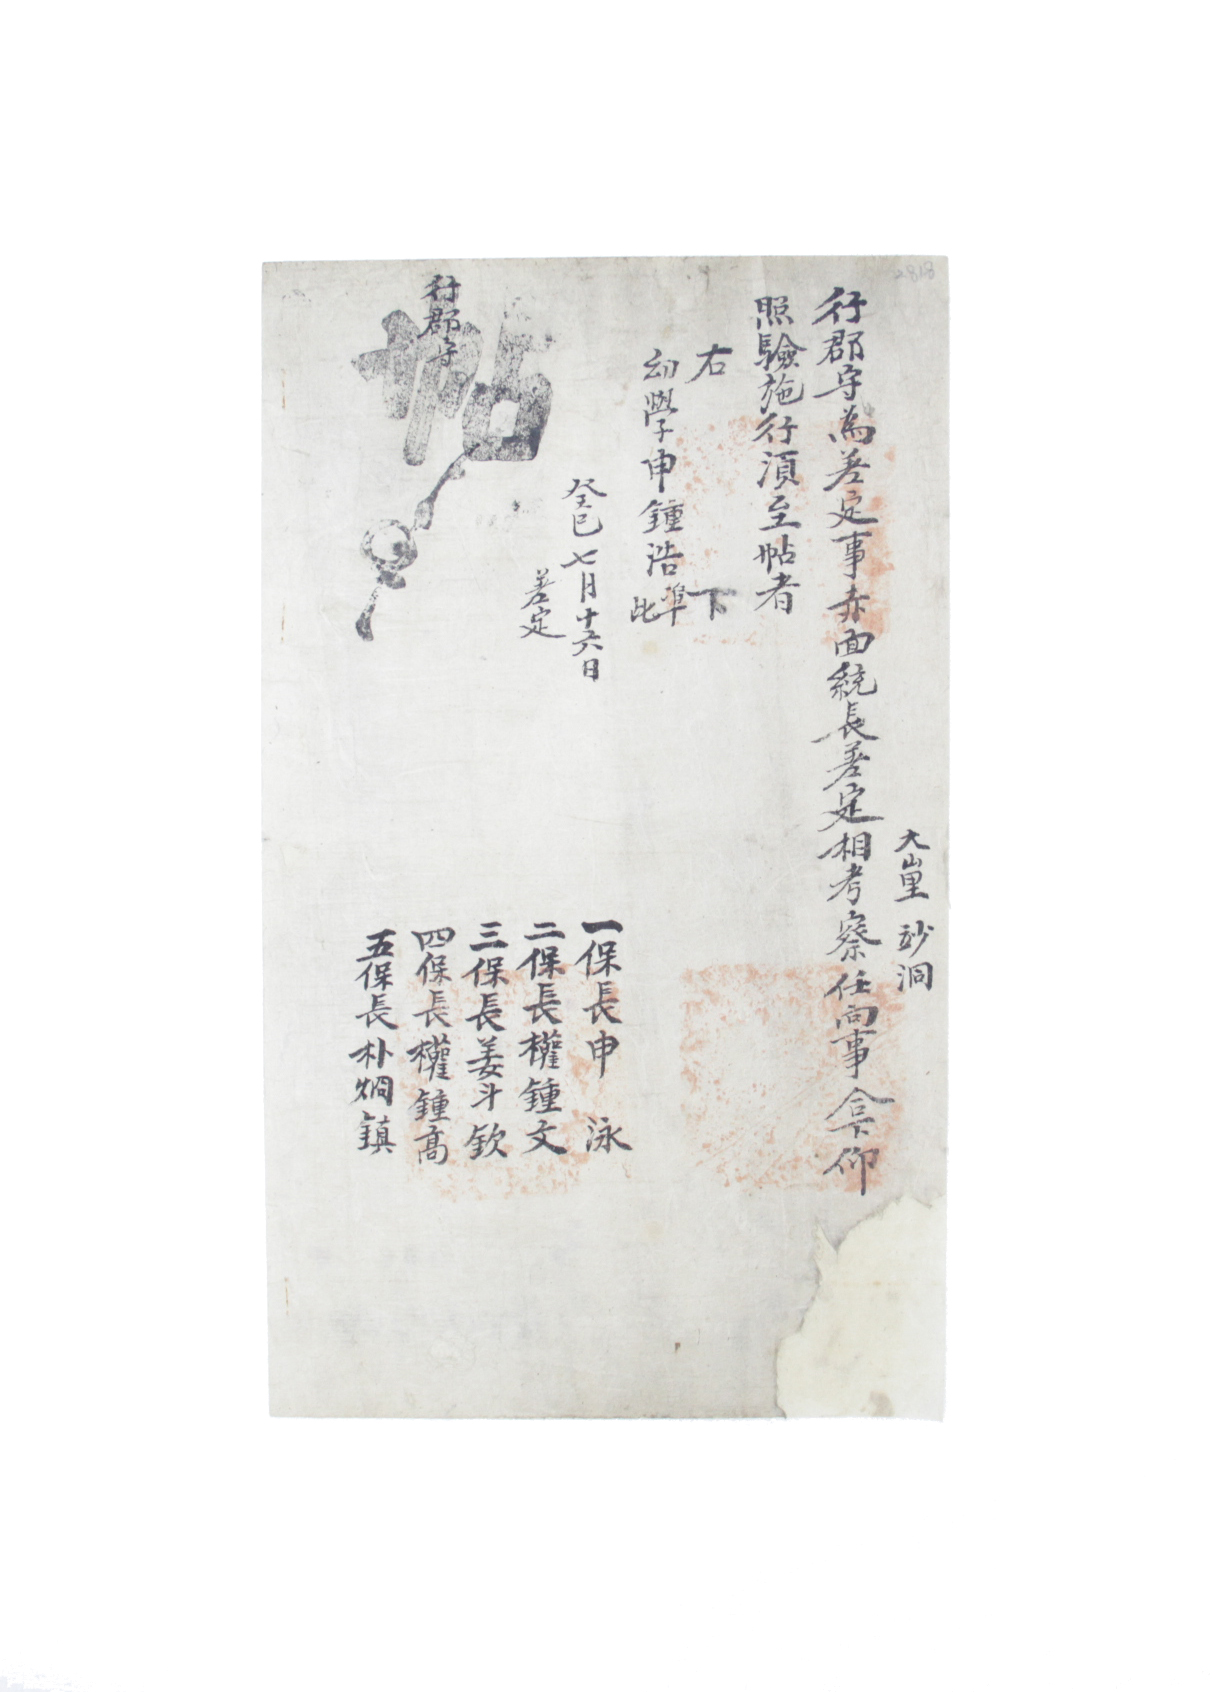 大里 沙洞
行郡守為差定事赤面統長差定相考察任向事合下仰
照驗施行須至帖者
右 下
幼學申鍾浩 準此
癸巳 七月十六日
差定
行郡守
帖
一保長申 泳
二保長權鍾文
三保長姜斗欽
四保長權鍾高
五保長朴炯鎮